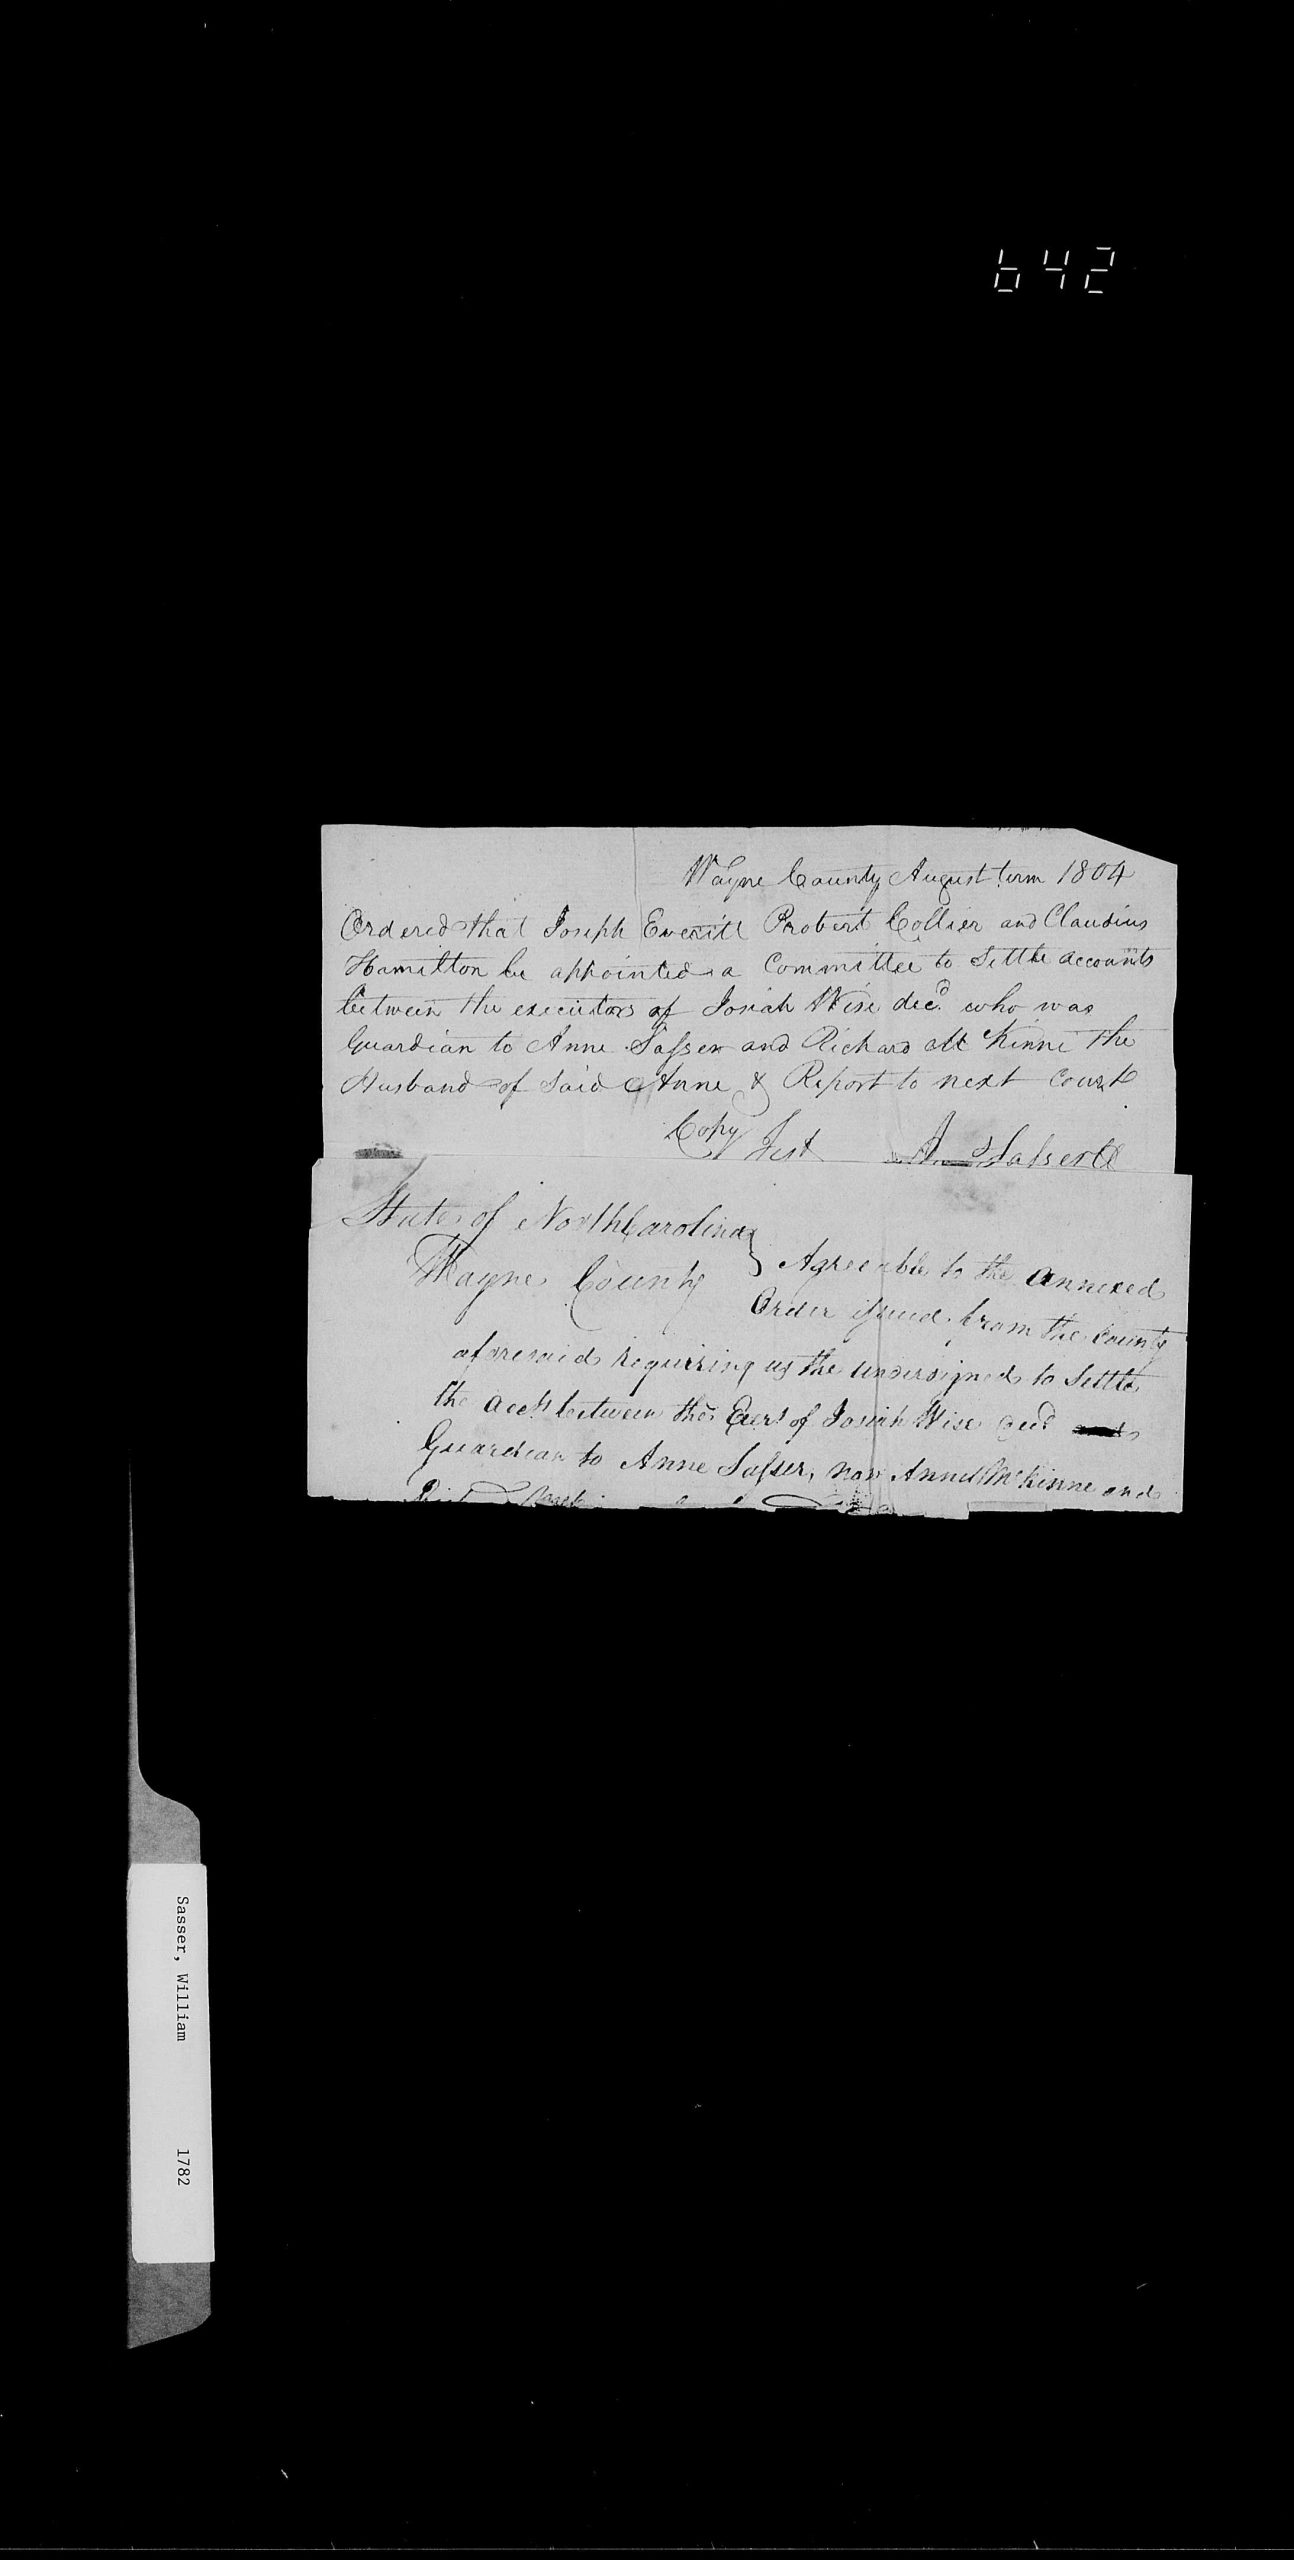 642
Wayne County August term 1804
Ordered that Joseph Everitt Probert Collier and Claudius
Hamilton be appointed a Committee to Settle accounts
between the executors of Josiah Wise decd. who was
Guardian to Anne Sasser and Richard McKinne the
Husband of Said Anne & Report to next Court
Copy Test Sasser Clk
State of North Carolina
Wayne County } Agreeable to the annexed
Order issued from the County
aforesaid requiring us the undersigned to Settle
the accts between the Exers of Josiah Wise decd
Guardian to Anne Sasser, now Anne McKinne and
Sasser, William 1782